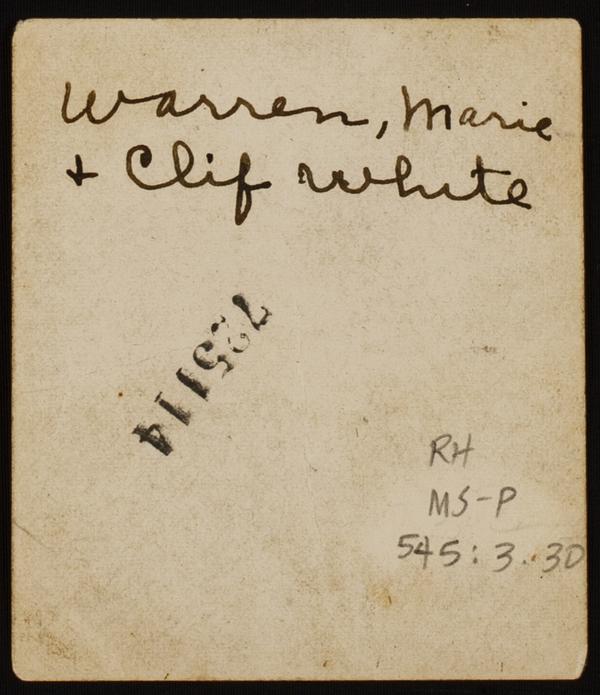 Warren, Marie
+ Clif White
RH
MS-P
545:3.30